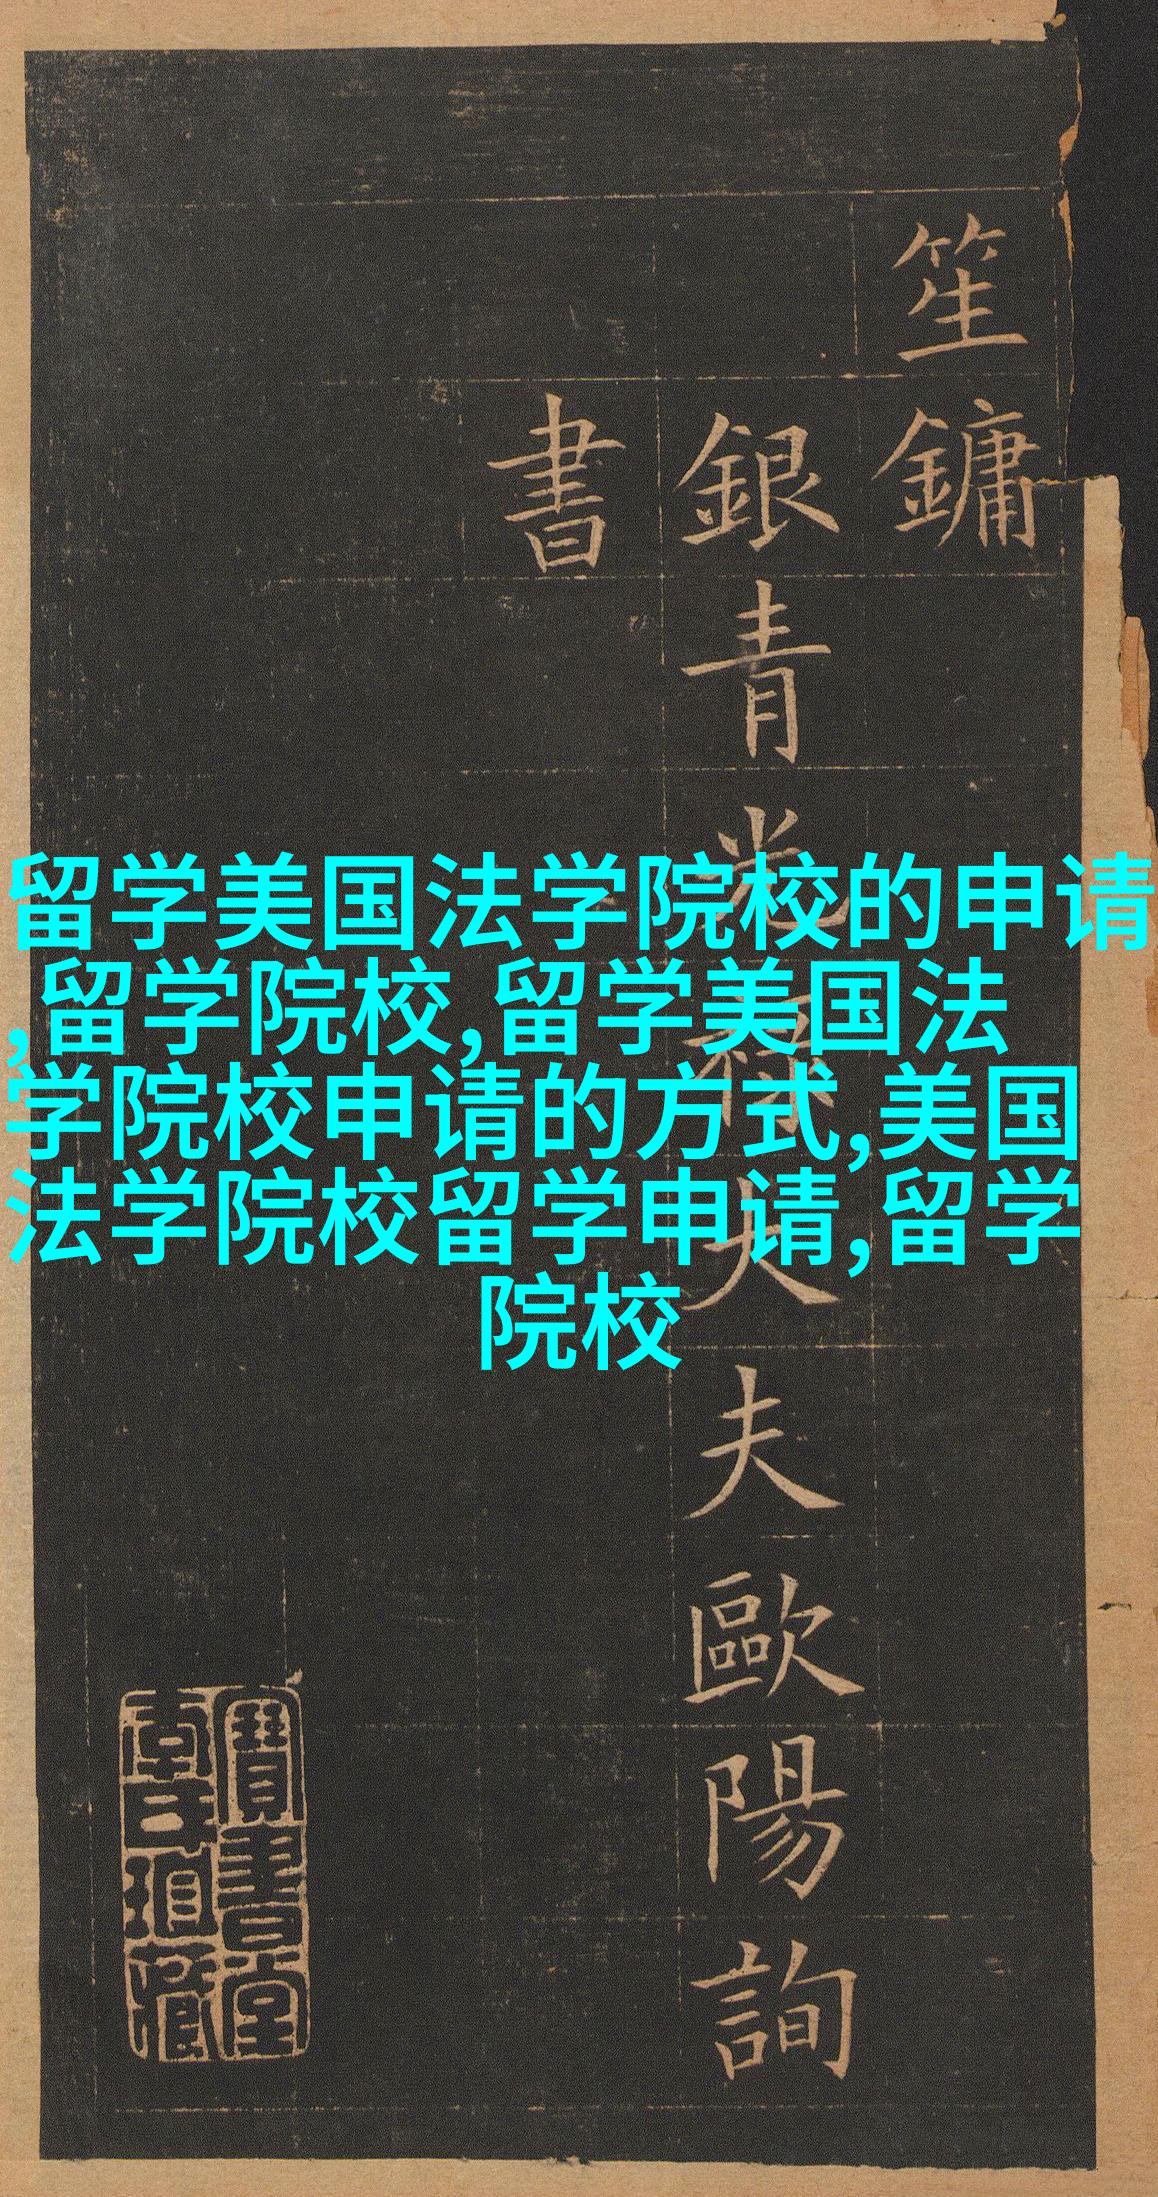 笙鏞
銀青光祿大夫歐陽詢
書
留学美国法学院校的申请
,留学院校,留学美国法
学院校申请的方式,美国
法学院校留学申请,留学
院校